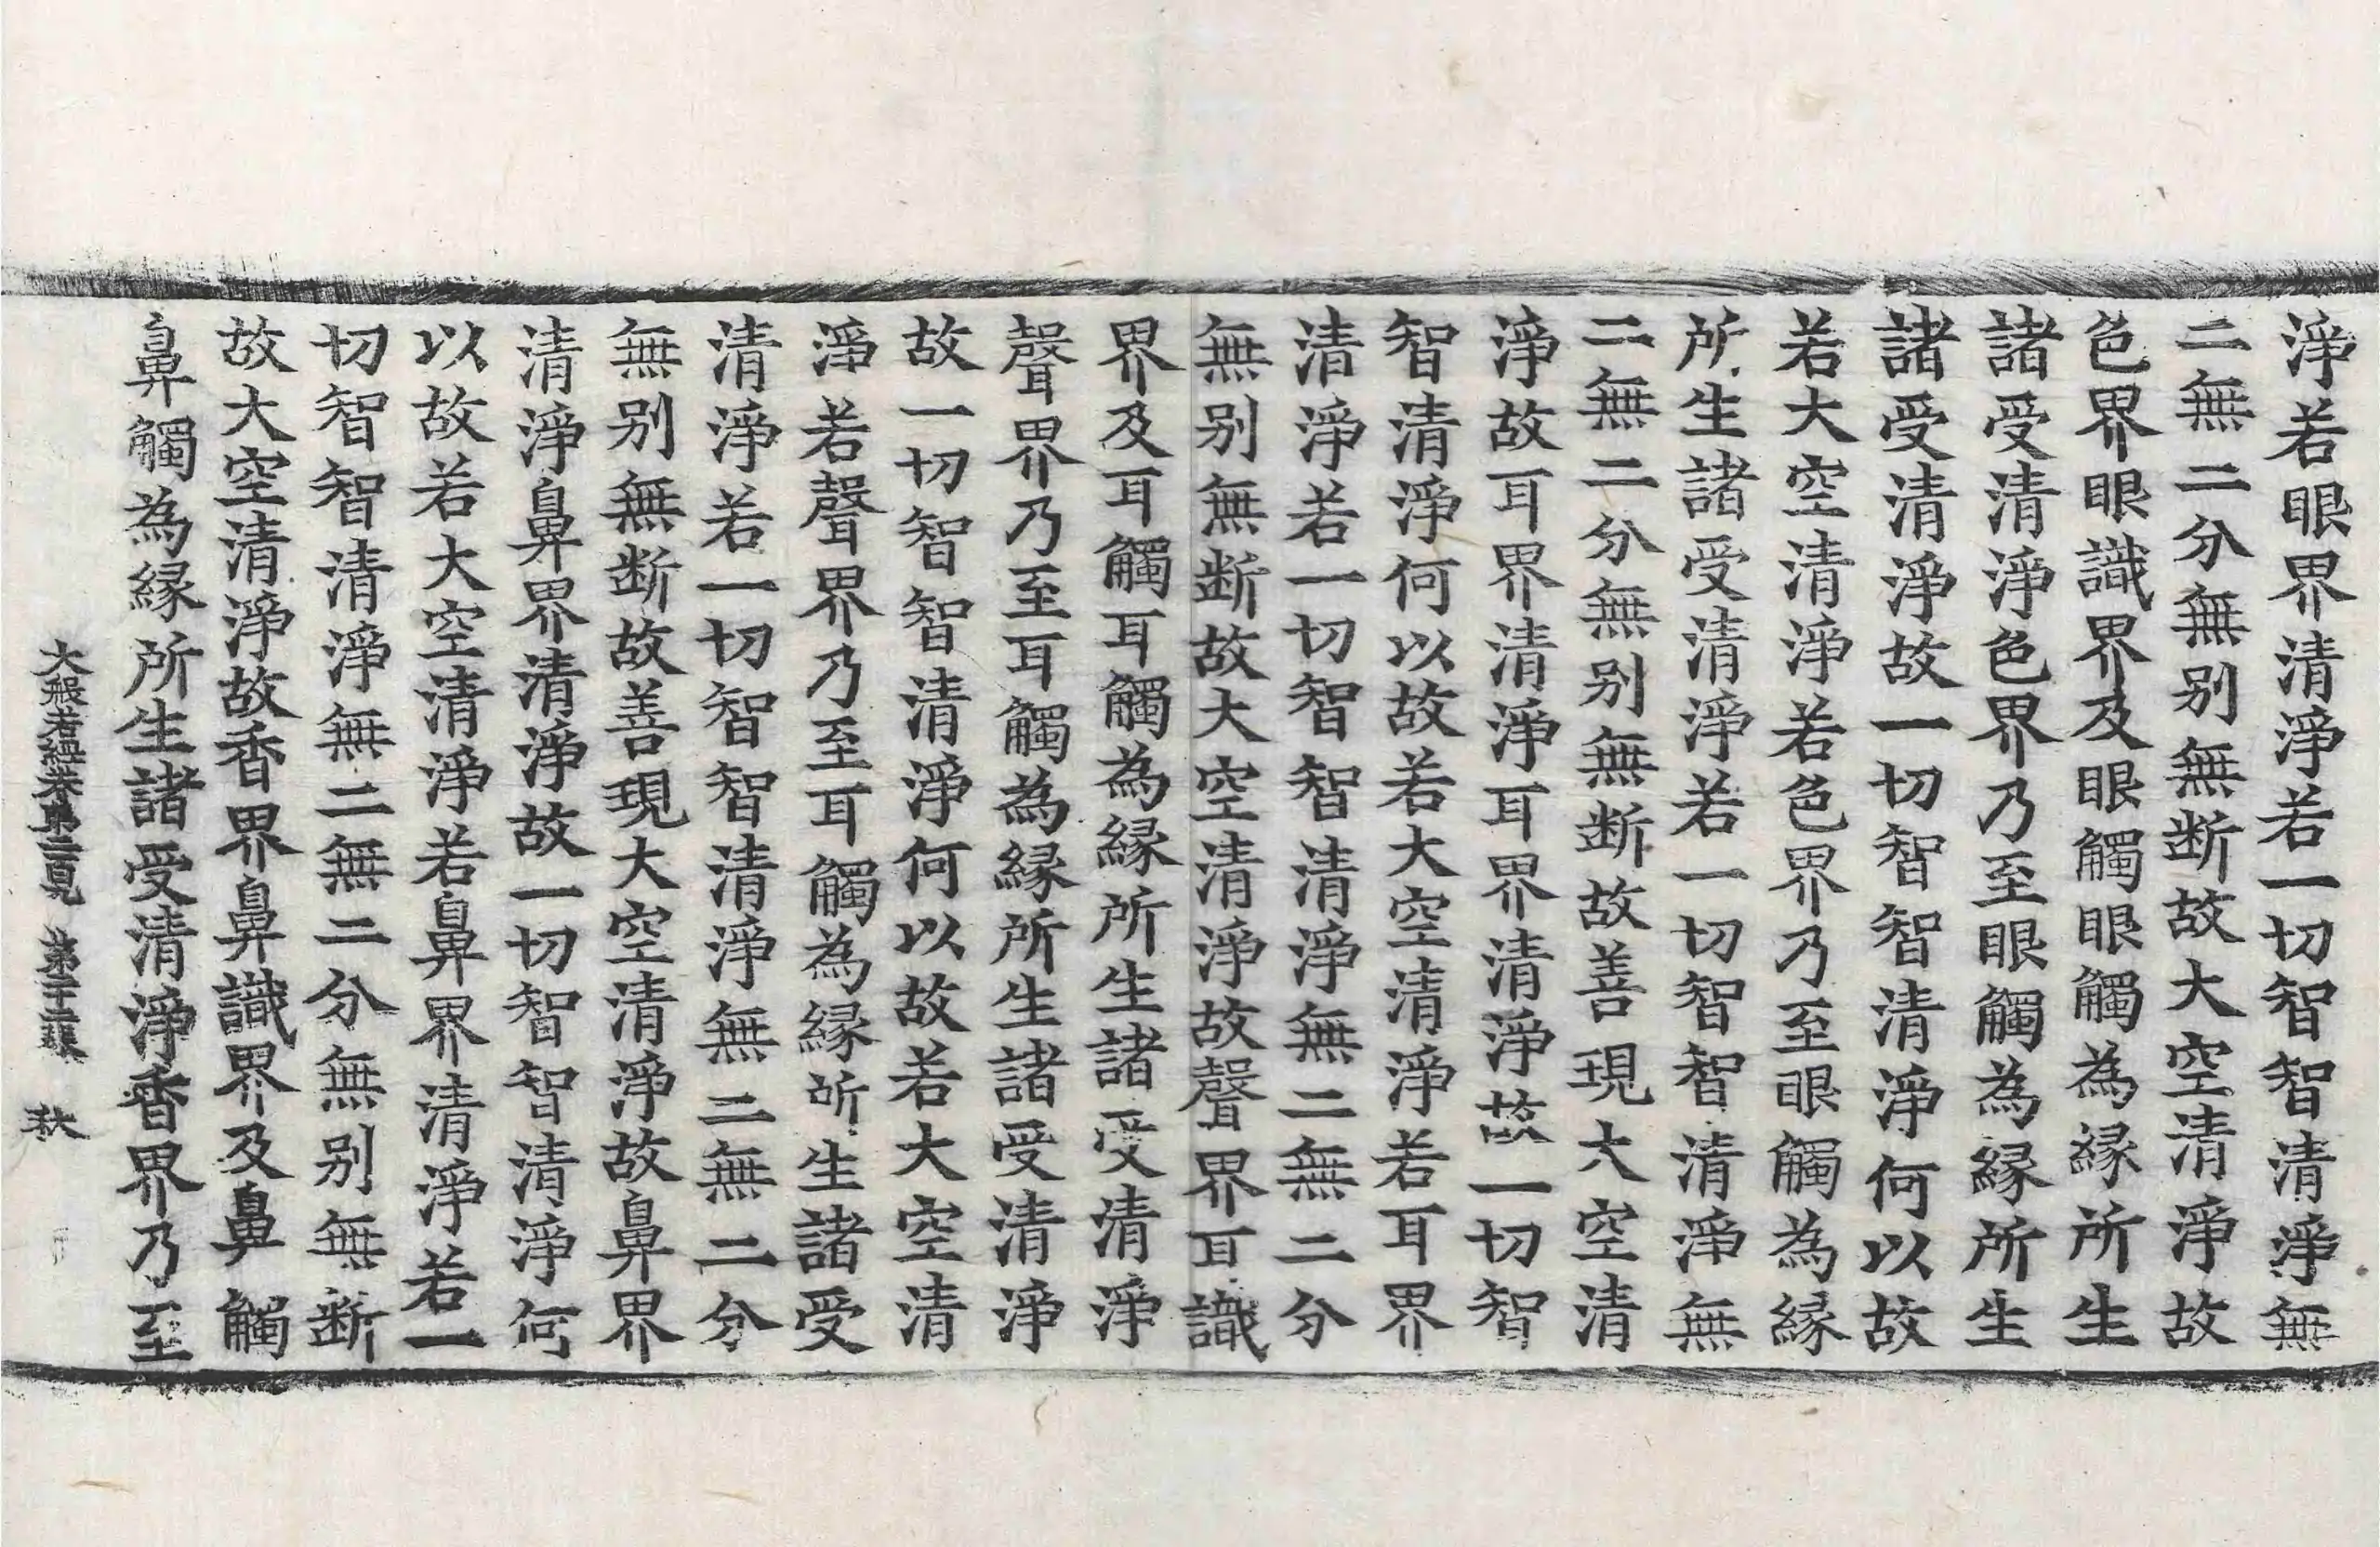 淨若眼界清淨若一切智智清淨無
二無二分無別無断故大空清淨故
色界眼識界及眼觸眼觸為縁所生
諸受清淨色界乃至眼觸為縁所生
諸受清淨故一切智智清淨何以故
若大空清淨若色界乃至眼觸為縁
所生諸受清淨若一切智智清淨無
二無二分無別無断故善現大空清
淨故耳界清淨耳界清淨故一切智
智清淨何以故若大空清淨若耳界
清淨若一切智智清淨無二無二分
無別無断故大空清淨故聲界耳識
界及耳觸耳觸為縁所生諸受清淨
聲界乃至耳觸為縁所生諸受清淨
故一切智智清淨何以故若大空清
淨若聲界乃至耳觸為縁所生諸受
清淨若一切智智清淨無二無二分
無別無断故善現大空清淨故鼻界
清淨鼻界清淨故一切智智清淨何
以故若大空清淨若鼻界清淨若一
切智智清淨無二無二分無別無断
故大空清淨故香界鼻識界及鼻觸
鼻觸為縁所生諸受清淨香界乃至
大般若經卷第二百九 第十二張 秋